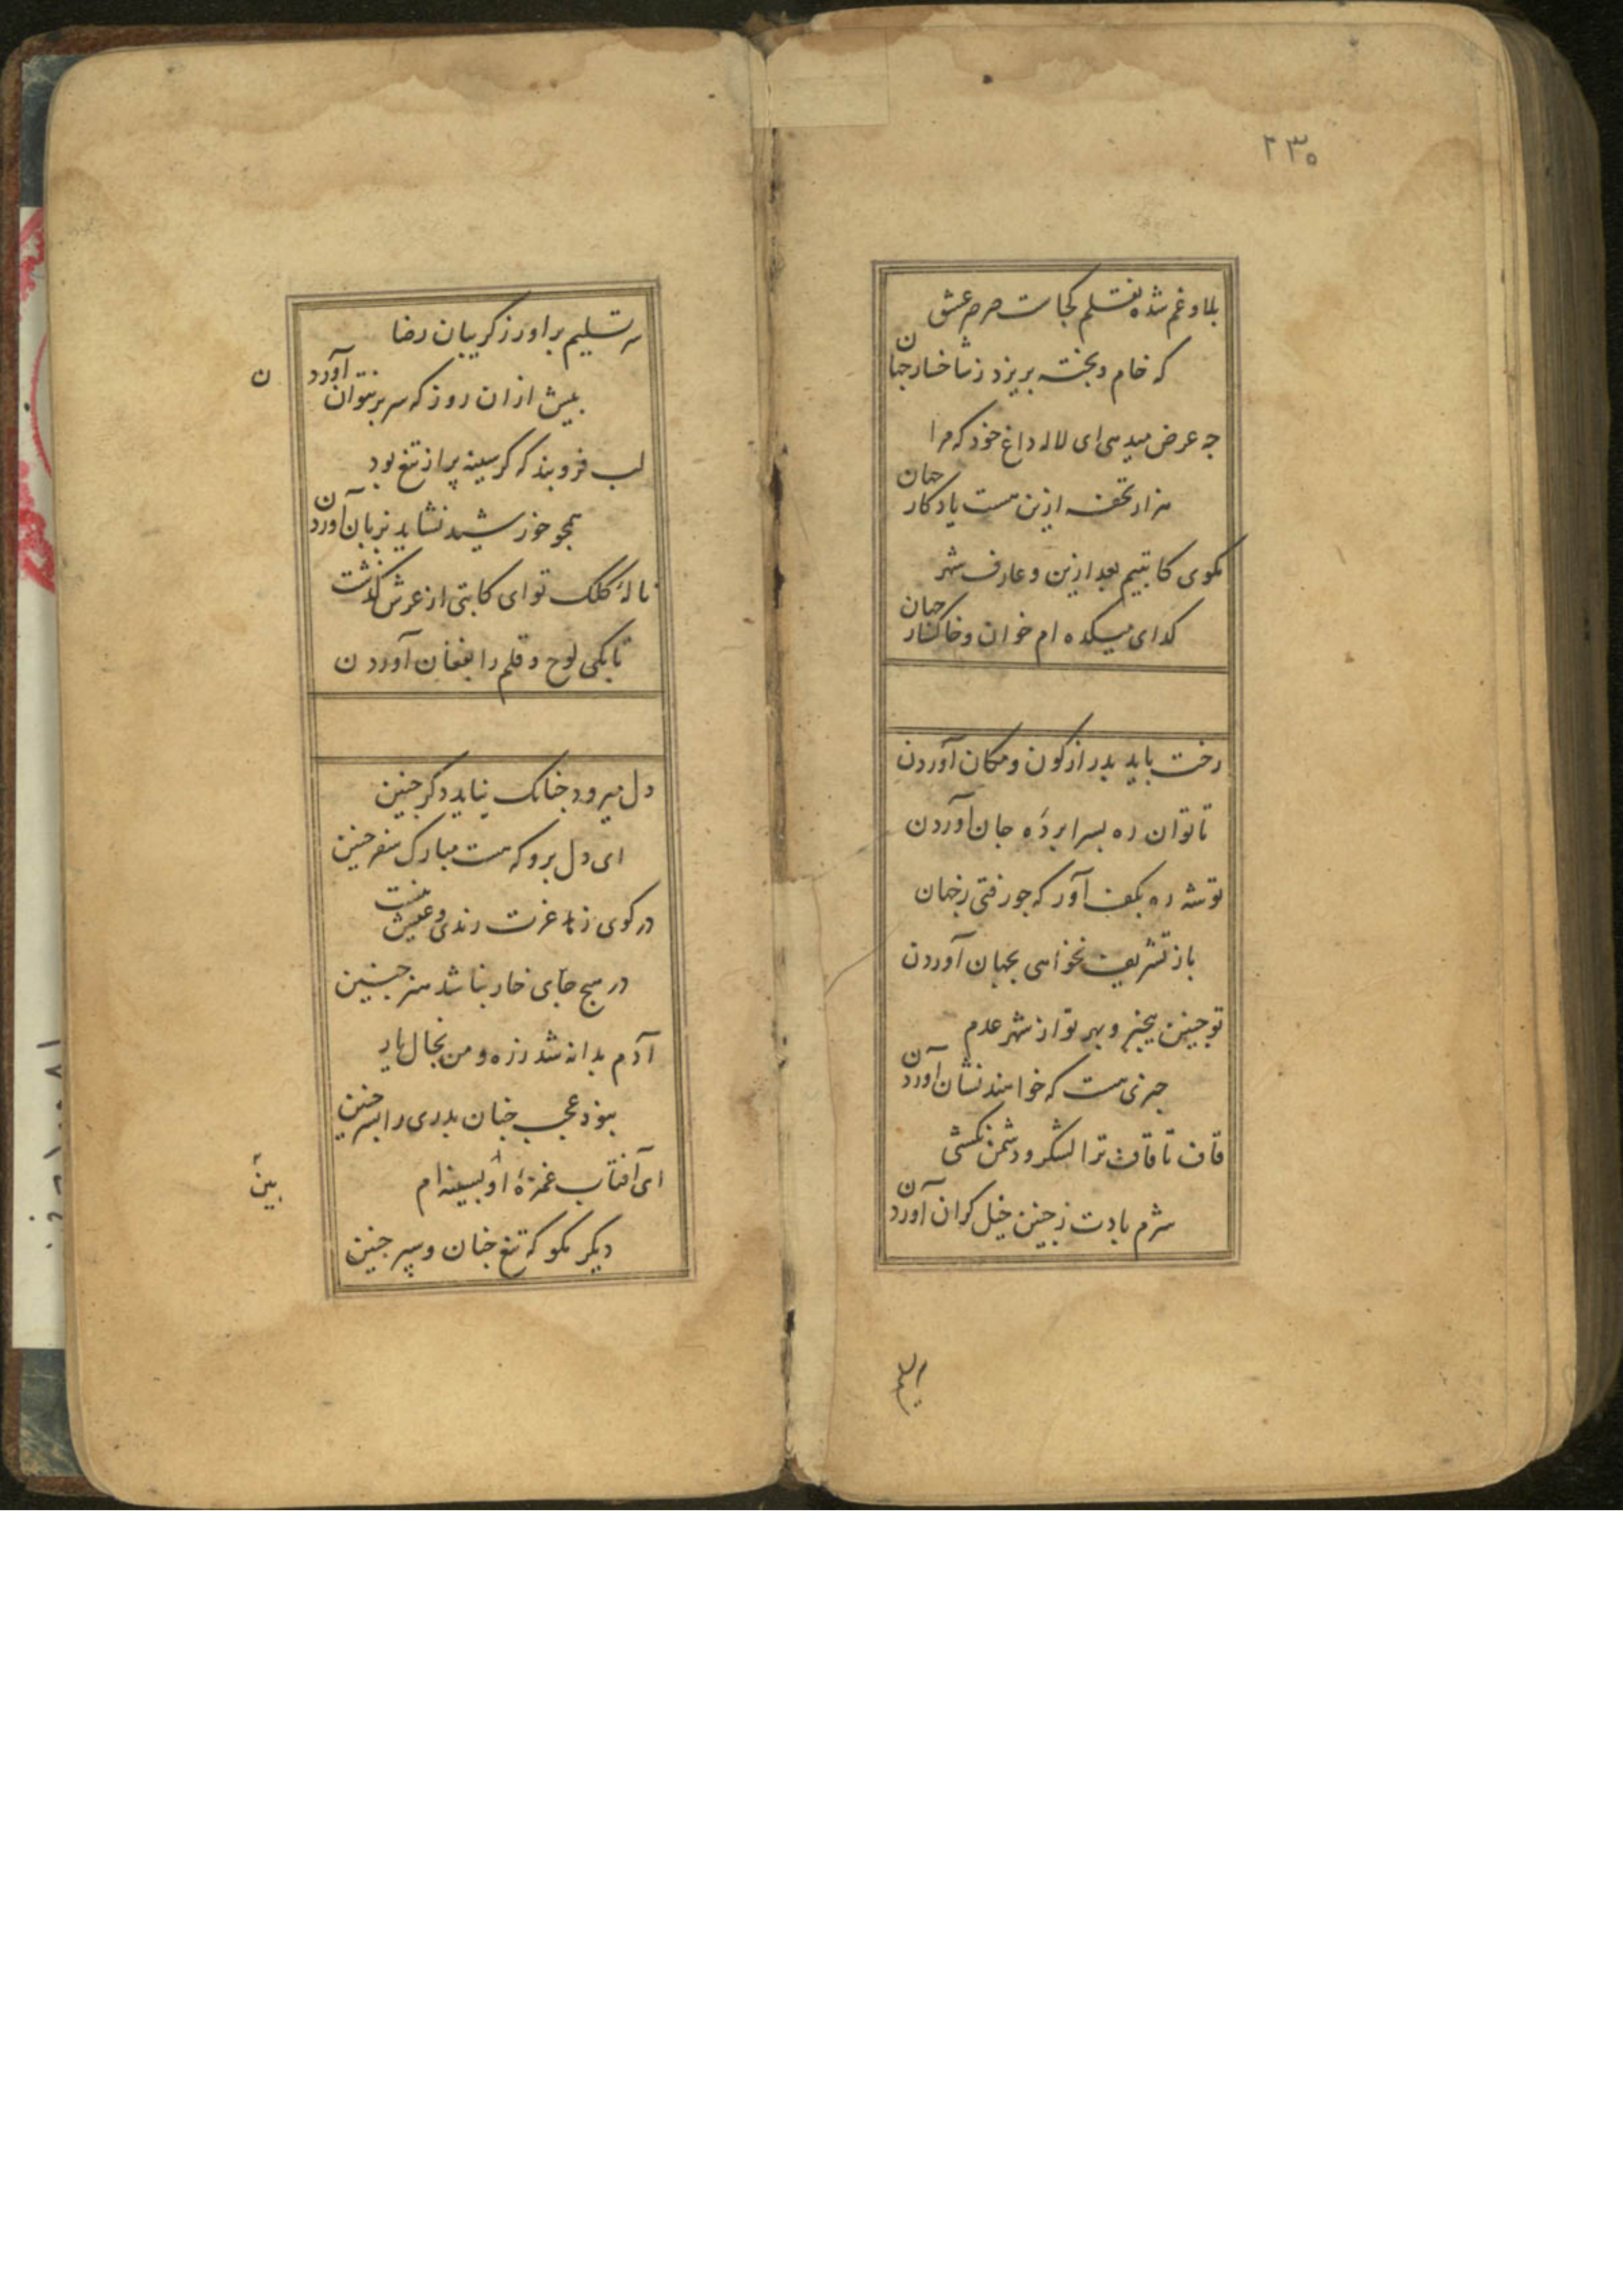 ۲۳۵
بلا و غم شده نقلم کجاست صرصر عشق
که خام و پخته بریزد ز شاخسار جهان
چه عرض میدهی ای لاله داغ خود که مرا
هزار تحفه ازین هست یادگار جهان
مگوی کاتبیم بعد ازین و عارف شهر
کدای میکده ام خوان و خاکسار جهان
رخت باید بدر از کون و مکان آوردن
تا توان ره بسرا پردهٔ جان آوردن
توشه ره بکف آور که چو رفتی ز جهان
باز تشریف نخواهی بجهان آوردن
تو چنین بیخبر و بهر تو از شهر عدم
خبری هست که خواهند نشان آوردن
قاف تا قاف ترا لشکر و دشمن نکشی
شرم بادت ز چنین خیل کران آوردن
سر تسلیم
سر تسلیم براور ز کریبان رضا
پیش ازان روز که سر برنتوان آورد ن
لب فروبند که کر سینه پر از تیغ بود
همچو خورشید نشاید بزبان آوردن
نالهٔ کلک تو ای کاتبی از عرش گذشت
تا بکی لوح و قلم را بفغان آوردن
دل میرود چنانک نیاید دگر چنین
ای دل برو که هست مبارک سفر چنین
در کوی زهد عزت رندی و عیش نیست
در هیچ جای خار نباشد هنر چنین
آدم بدانه شد ز ره و من بخال یار
نبود عجب چنان پدری را پسر چنین
ای آفتاب غمزهٔ او بین سینه ام
دیگر مگو که تیغ چنان و سپر چنین